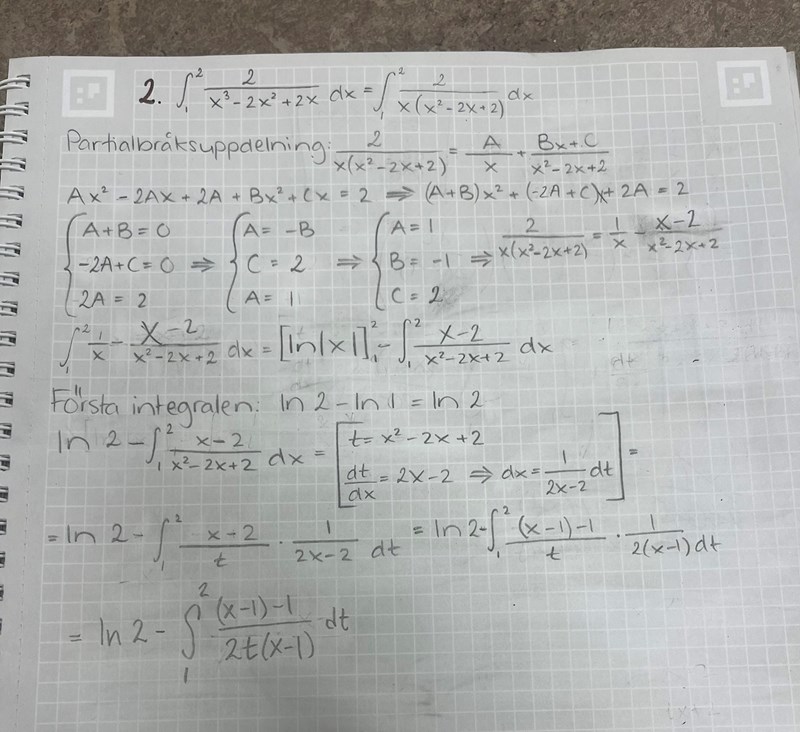 2. ∫₁² 2/(x³-2x²+2x) dx = ∫₁² 2/(x(x²-2x+2)) dx
Partialbråksuppdelning: 2/(x(x²-2x+2)) = A/x + (Bx+C)/(x²-2x+2)
Ax² - 2Ax + 2A + Bx² + Cx = 2 ⇒ (A+B)x² + (-2A+C)x + 2A = 2
{ A+B=0 { A = -B { A = 1
{ -2A+C=0 ⇒ { C = 2 ⇒ { B = -1 ⇒ 2/(x(x²-2x+2)) = 1/x - (x-2)/(x²-2x+2)
{ 2A = 2 { A = 1 { C = 2
∫₁² 1/x - (x-2)/(x²-2x+2) dx = [ln|x|]₁² - ∫₁² (x-2)/(x²-2x+2) dx
Första integralen: ln 2 - ln 1 = ln 2
ln 2 - ∫₁² (x-2)/(x²-2x+2) dx = [ t = x² - 2x + 2
dt/dx = 2x-2 ⇒ dx = 1/(2x-2) dt ] =
= ln 2 - ∫₁² (x-2)/t · 1/(2x-2) dt = ln 2 - ∫₁² ((x-1)-1)/t · 1/(2(x-1)) dt
= ln 2 - ∫₁² ((x-1)-1)/(2t(x-1)) dt